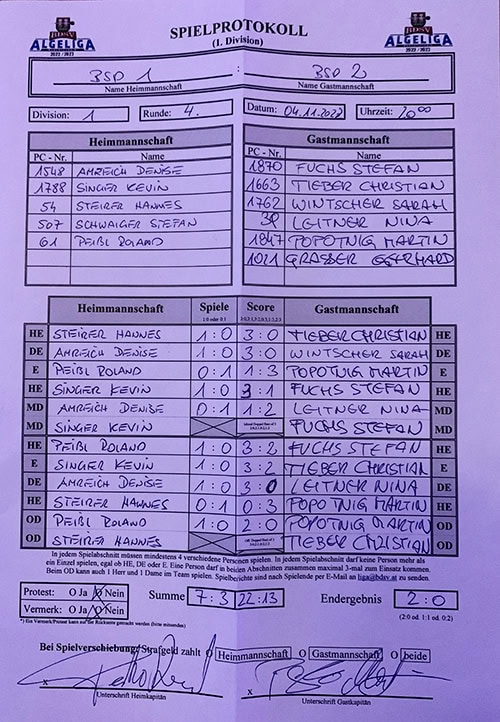 BDSV
ALGELIGA
2022 / 2023
SPIELPROTOKOLL
(1. Division)
BDSV
ALGELIGA
2022 / 2023
BSD 1 : BSD 2
Name Heimmannschaft Name Gastmannschaft
Division: 1 Runde: 4. Datum: 04.11.2022 Uhrzeit: 20:00
Heimmannschaft Gastmannschaft
PC - Nr. Name PC - Nr. Name
1548 AMREICH DENISE 1870 FUCHS STEFAN
1788 SINGER KEVIN 1663 TIEBER CHRISTIAN
54 STEIRER HANNES 1762 WINTSCHER SARAH
507 SCHWAIGER STEFAN LEITNER NINA
61 PEIßL ROLAND 1847 POPOTNIG MARTIN
1021 GRASSER GERHARD
Heimmannschaft Spiele Score Gastmannschaft
1:0 oder 0:1
HE STEIRER HANNES 1:0 3:0 TIEBER CHRISTIAN HE
DE AMREICH DENISE 1:0 3:0 WINTSCHER SARAH DE
E PEIßL ROLAND 0:1 1:3 POPOTNIG MARTIN E
HE SINGER KEVIN 1:0 3:1 FUCHS STEFAN HE
MD AMREICH DENISE 0:1 1:2 LEITNER NINA MD
MD SINGER KEVIN FUCHS STEFAN MD
HE PEIßL ROLAND 1:0 3:2 FUCHS STEFAN HE
E SINGER KEVIN 1:0 3:2 TIEBER CHRISTIAN E
DE AMREICH DENISE 1:0 3:0 LEITNER NINA DE
HE STEIRER HANNES 0:1 0:3 POPOTNIG MARTIN HE
OD PEIßL ROLAND 1:0 2:0 POPOTNIG MARTIN OD
OD STEIRER HANNES TIEBER CHRISTIAN OD
In jedem Spielabschnitt müssen mindestens 4 verschiedene Personen spielen. In jedem Spielabschnitt darf keine Person mehr als
ein Einzel spielen, egal ob HE, DE oder E. Eine Person darf in beiden Abschnitten zusammen maximal 3-mal zum Einsatz kommen.
Beim OD kann auch 1 Herr und 1 Dame im Team spielen. Spielberichte sind nach Spielende per E-Mail an liga@bdsv.at zu senden.
Protest: O Ja O Nein Summe 7:3 22:13 Endergebnis 2:0
Vermerk: O Ja O Nein (2:0 od. 1:1 od. 0:2)
*) Ein Vermerk/Protest kann auf der Rückseite gemacht werden (bitte ankreuzen)
Bei Spielverschiebung/Strafgeld zahlt O Heimmannschaft O Gastmannschaft O beide
x x
Unterschrift Heimkapitän Unterschrift Gastkapitän